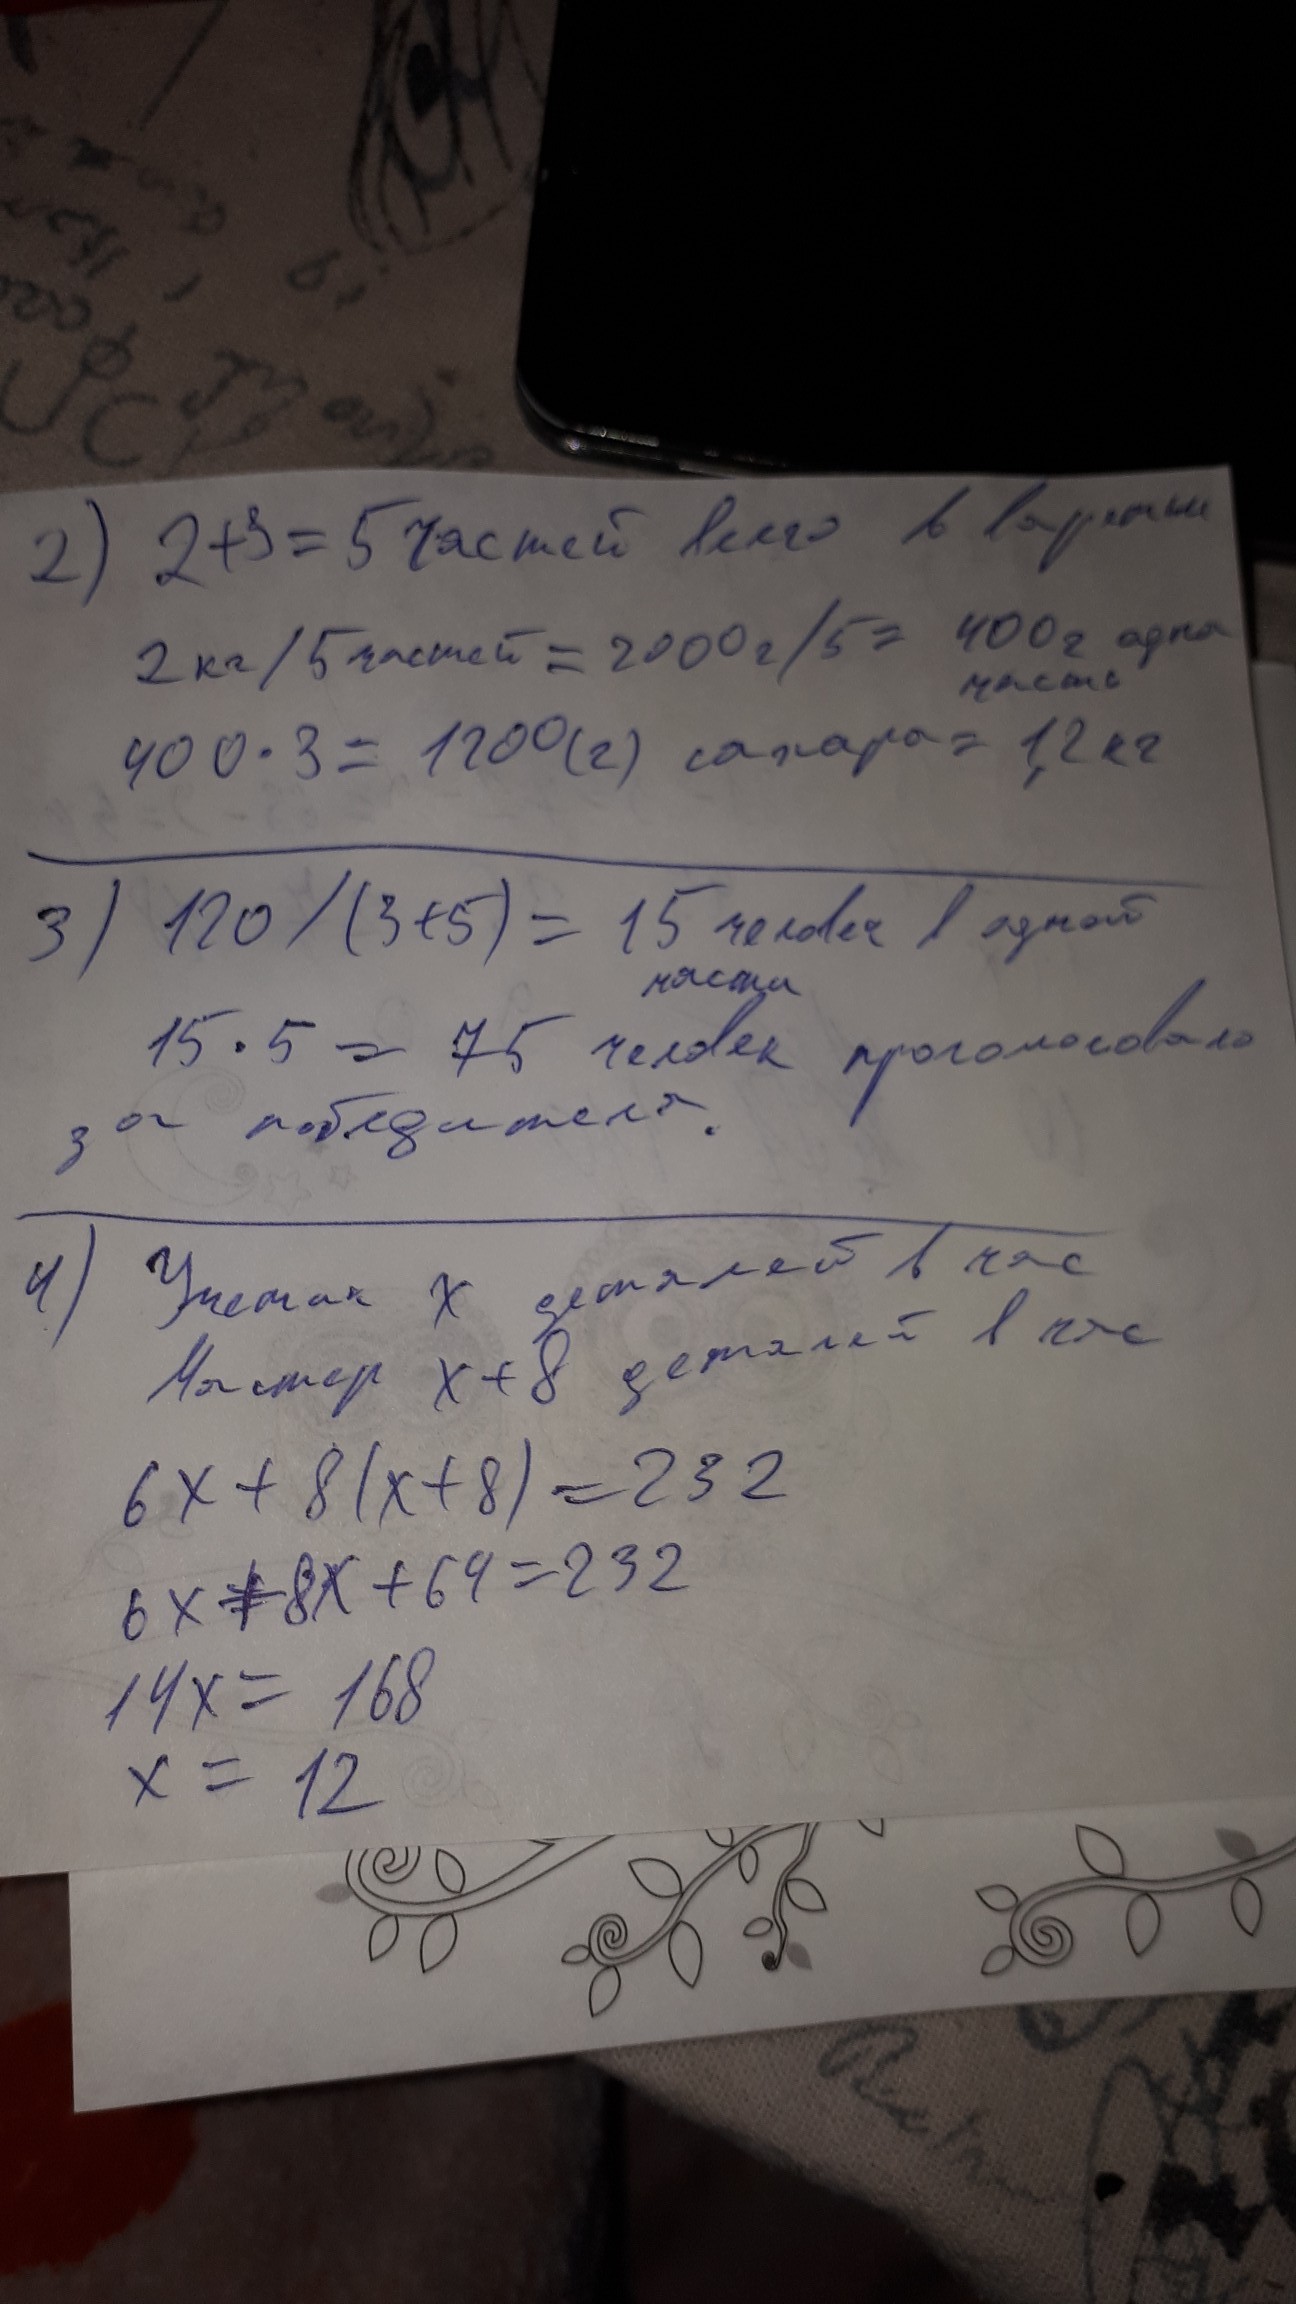 2) 2+3=5 частей всего в варенье
2 кг/5 частей = 2000 г/5 = 400 г одна
часть
400·3 = 1200 (г) сахара = 1,2 кг
3) 120/(3+5) = 15 человек в одной
части
15·5 = 75 человек проголосовало
за победителя.
4) Ученик x деталей в час
Мастер x+8 деталей в час
6x + 8(x+8) = 232
6x + 8x + 64 = 232
14x = 168
x = 12